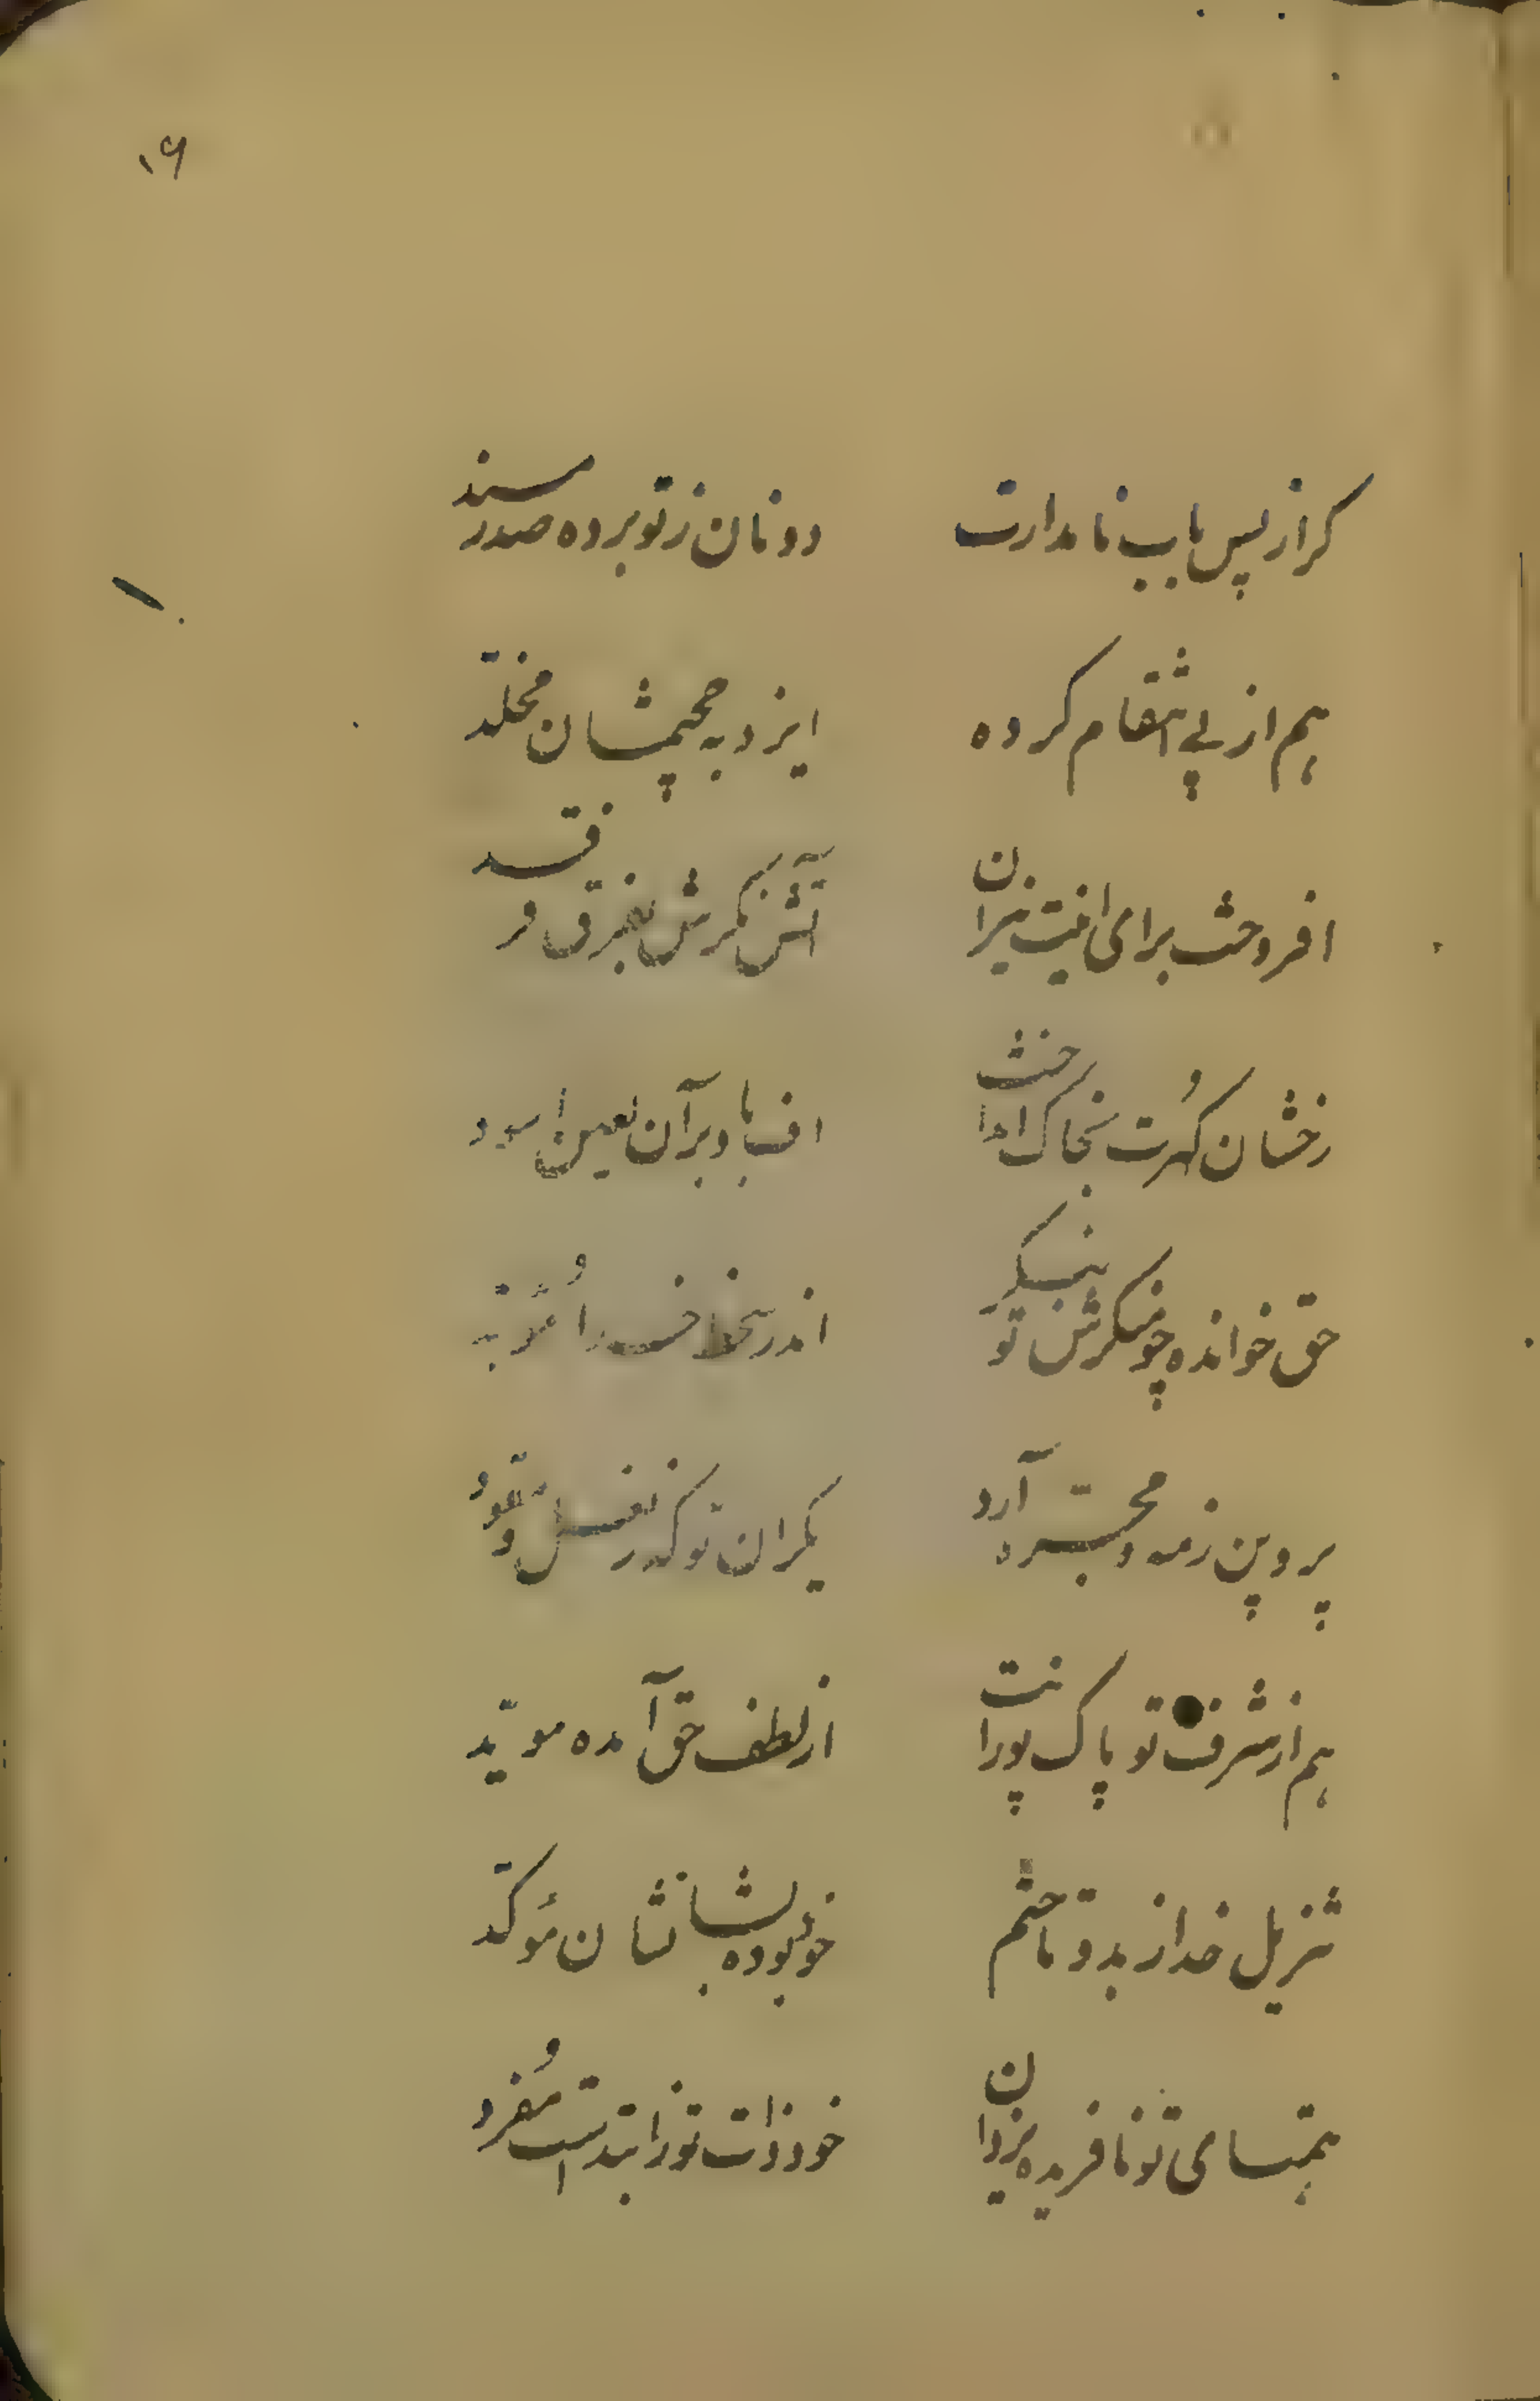 ۱۶
کر از پس باب نامدارت دونان ز تو برده صدر مسند
هم از پی انتقام کرده ایزد به جحیمشان مخلّد
افروخت برای اینت نیران آتش بفرق فرقد
رخشان کُهرت بخاک انداخت اف باد بر آن لعین اسود
حق خوانده چو منکرش تو بنکر اندر سخط خدا مُؤبّد
پروین ز مه و مجرّه آرد یکران تو که ز نعل و مقود
هم از شرف تو پاک پورانت از لطف حق آمده مویّد
تنزیل خدا ز بدو تا ختم خود بوده بشانشان مؤکّد
همتای تو نافریده یزدان خود ذات تو ز ابتداست مُفرد